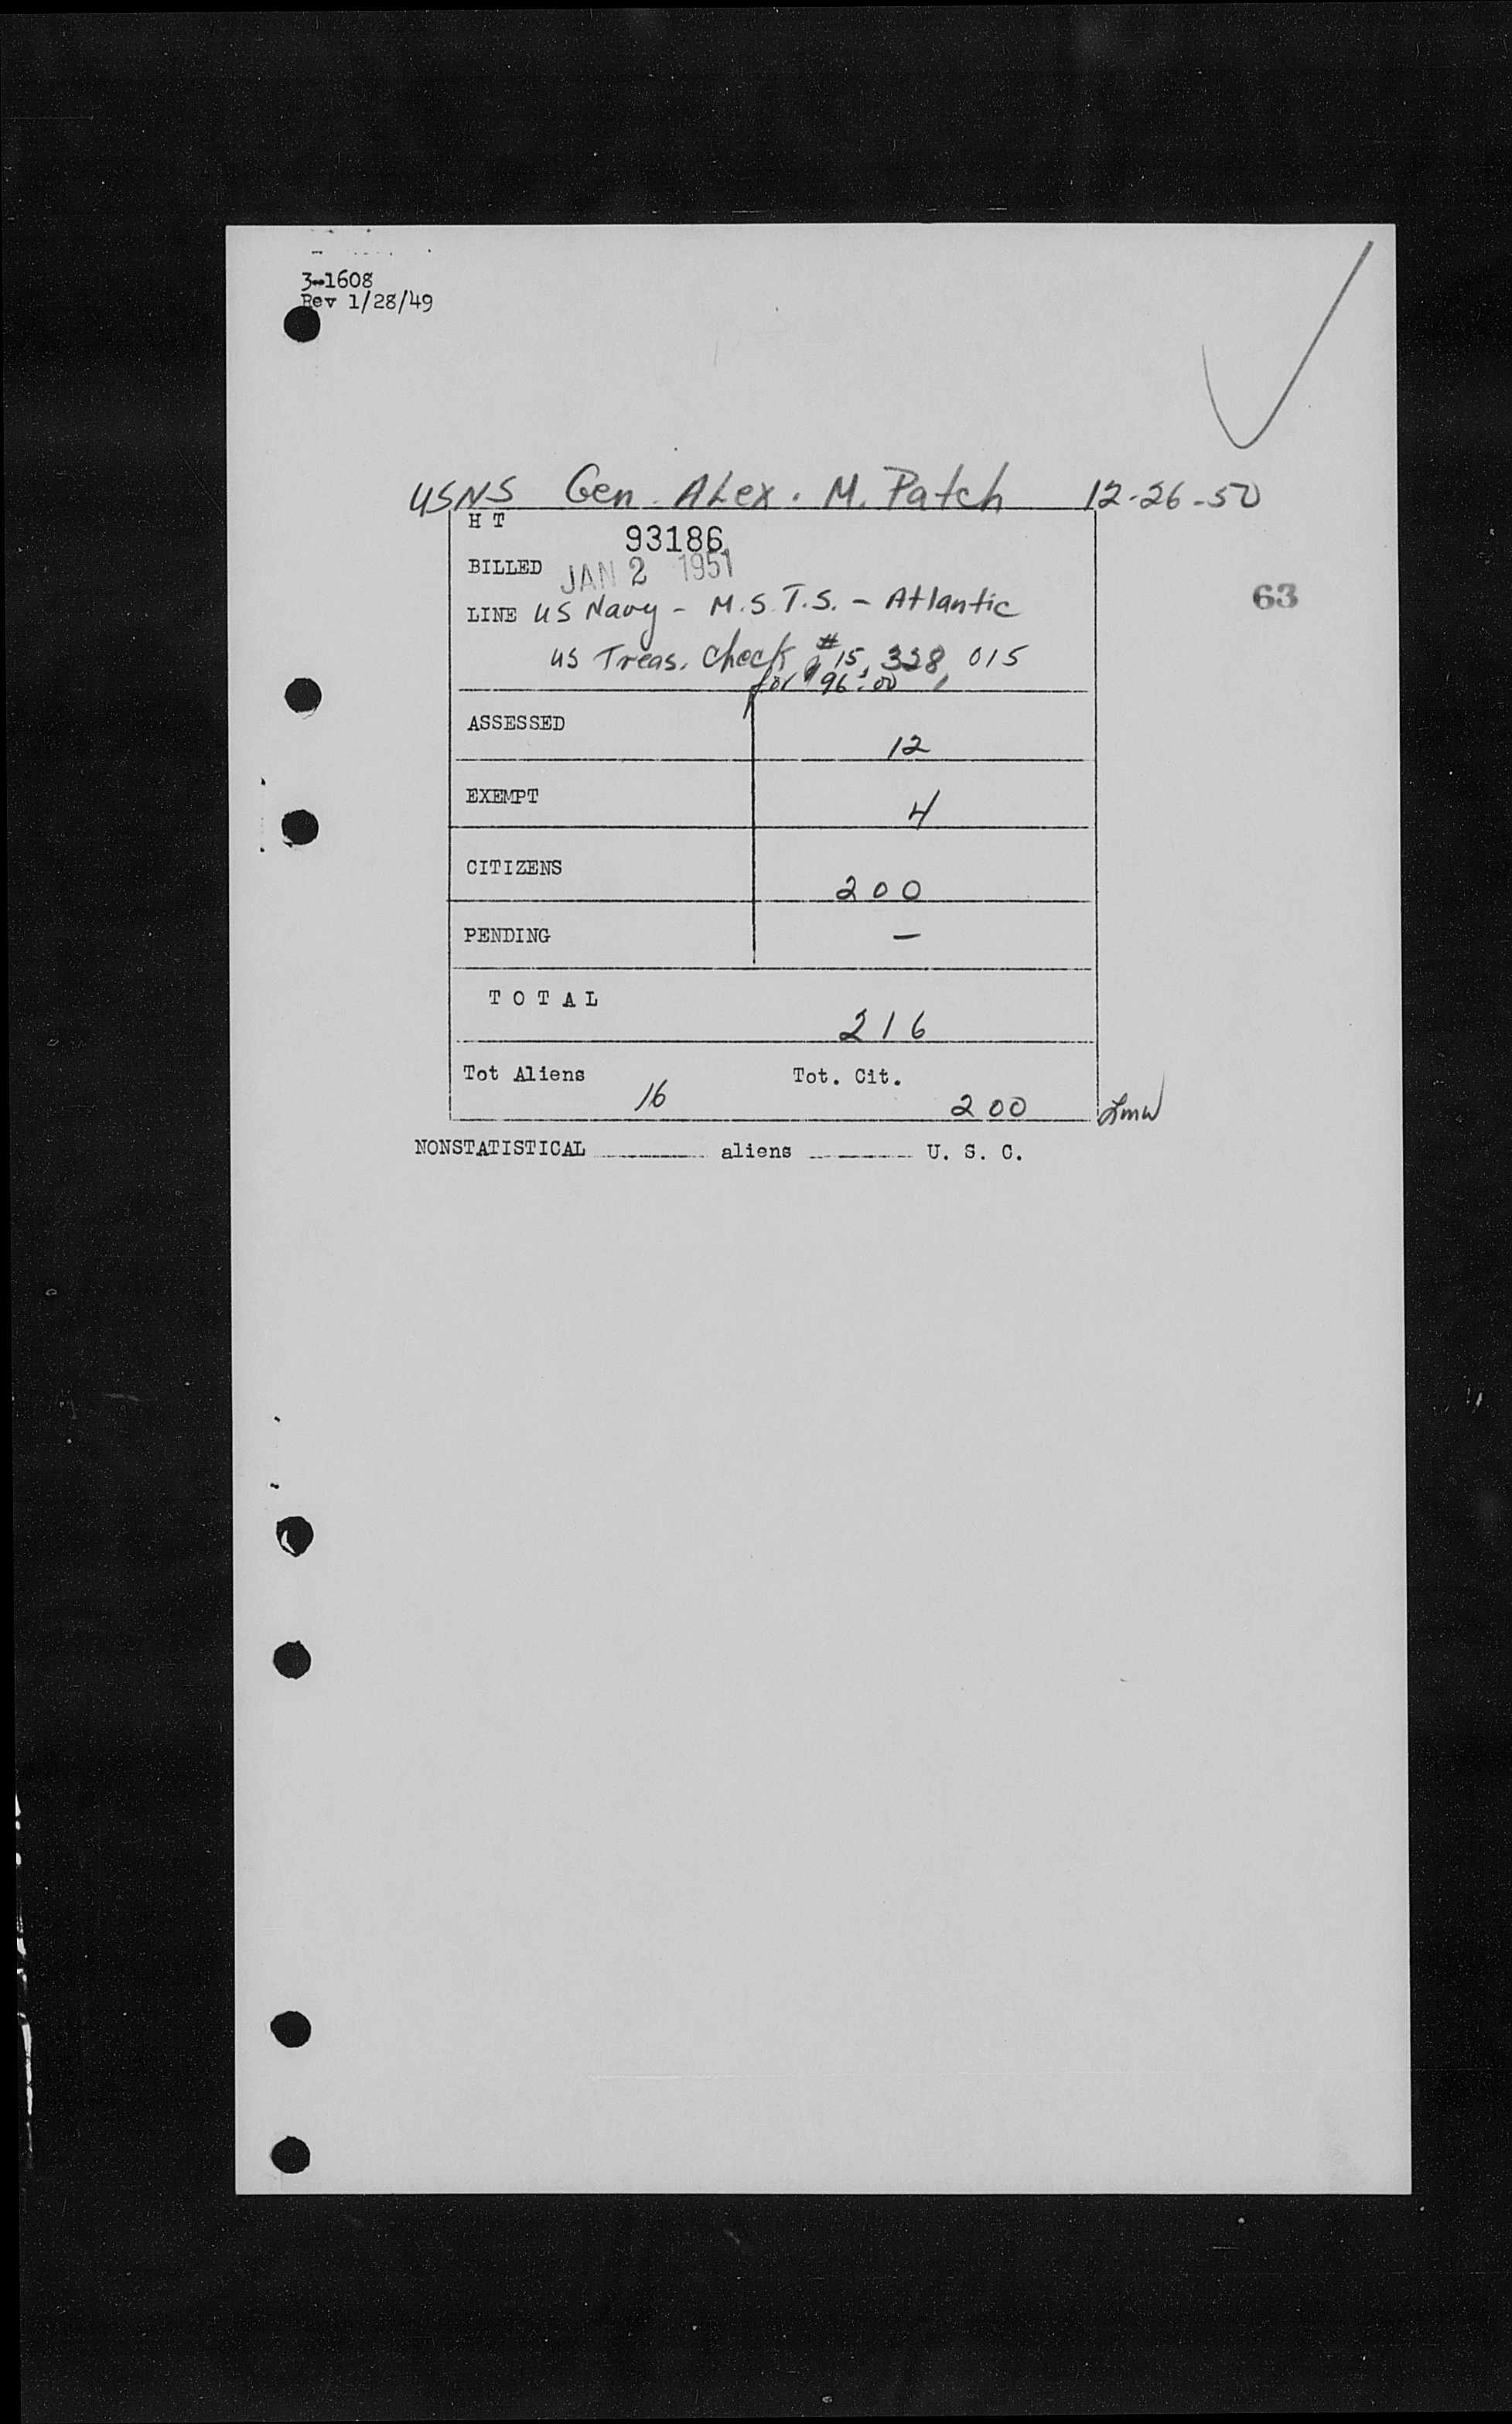 3-1608
Rev 1/28/49
USNS Gen. ALex. M. Patch 12-26-50
H T
93186
BILLED JAN 2 1951
63
LINE US Navy - M.S.T.S. - Atlantic
US Treas. Check #15,328,015
for $96.00
ASSESSED 12
EXEMPT 4
CITIZENS 200
PENDING —
T O T A L 216
Tot Aliens 16 Tot. Cit. 200
LMW
NONSTATISTICAL ______ aliens ______ U. S. C.